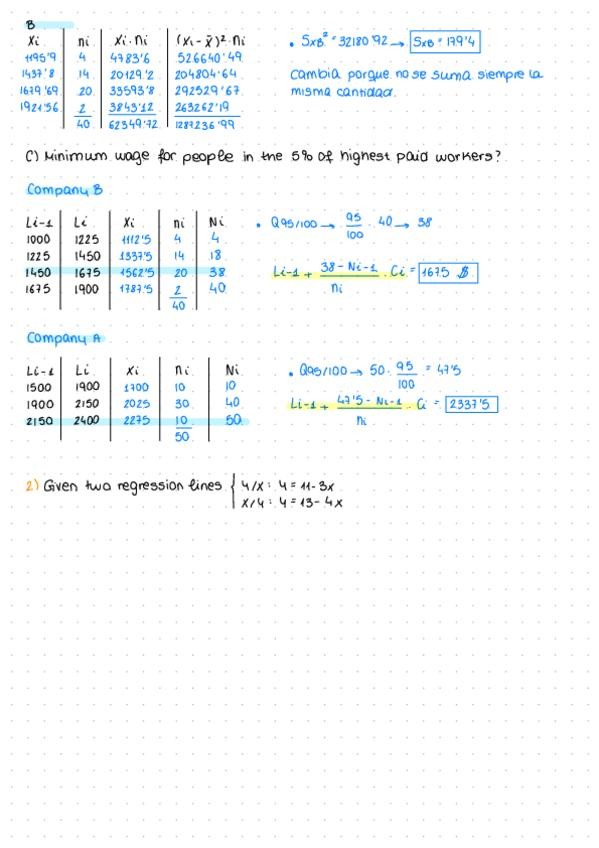 B
Xi ni Xi·ni (Xi-x̄)²·ni
1195'9 4 4783'6 526640'49
1437'8 14 20129'2 204804'64
1679'69 20 33593'8 292529'67
1921'56 2 3843'12 263262'19
40 62349'72 1287236'99
• SxB² = 32180'92 → SxB = 179'4
Cambia porque no se suma siempre la
misma cantidad.
C) Minimum wage for people in the 5% of highest paid workers?
Company B
Li-1 Li Xi ni Ni
1000 1225 1112'5 4 4
1225 1450 1337'5 14 18
1450 1675 1562'5 20 38
1675 1900 1787'5 2 40
40
• Q95/100 → 95/100 · 40 → 38
Li-1 + (38 - Ni-1)/ni · Ci = 1675 $.
Company A
Li-1 Li Xi ni Ni
1500 1900 1700 10 10
1900 2150 2025 30 40
2150 2400 2275 10 50
50
• Q95/100 → 50 · 95/100 = 47'5
Li-1 + (47'5 - Ni-1)/ni · Ci = 2337'5
2) Given two regression lines { y/x: y = 11-3x
x/y: y = 13-4x